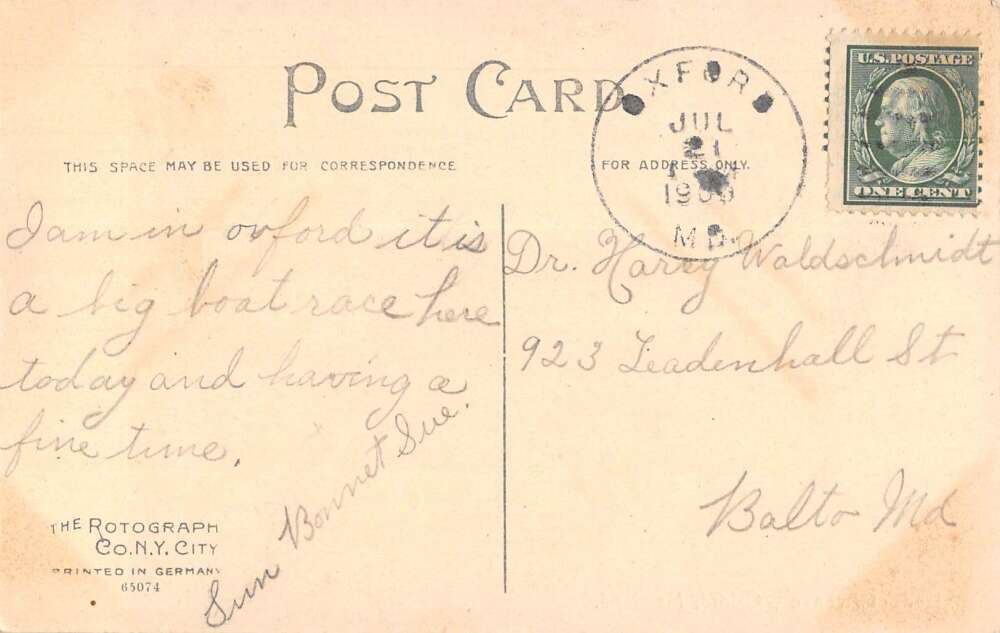 POST CARD
THIS SPACE MAY BE USED FOR CORRESPONDENCE
FOR ADDRESS ONLY.
OXFORD
JUL
21
MD.
U.S. POSTAGE
ONE CENT
I am in oxford it is
a big boat race here
today and having a
fine time.
Sun Bonnet Sue.
Dr. Harry Waldschmidt
923 Leadenhall St
Balto Md
THE ROTOGRAPH
CO. N.Y. CITY
PRINTED IN GERMANY
65074